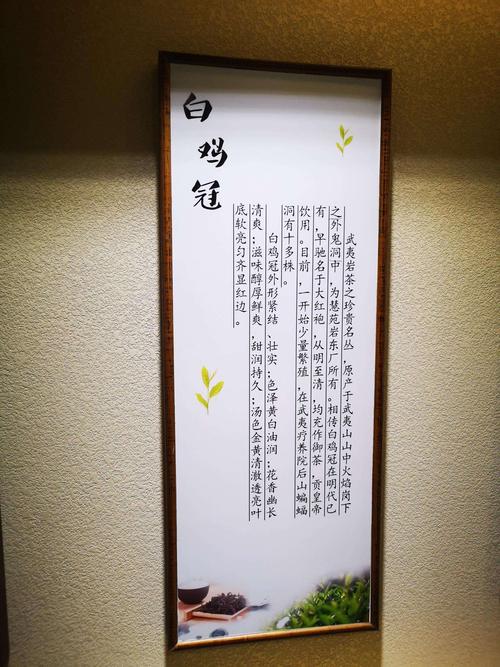 白鸡冠
武夷岩茶之珍贵名丛，原产于武夷山山中火焰岗下
之外鬼洞中，为慧苑岩东厂所有。相传白鸡冠在明代已
有，早驰名于大红袍，从明至清，均充作御茶，贡皇帝
饮用。目前，一开始少量繁殖，在武夷疗养院后山蝙蝠
洞有十多株。
白鸡冠外形紧结、壮实；色泽黄白油润；花香幽长
清爽；滋味醇厚鲜爽，甜润持久；汤色金黄清澈透亮叶
底软亮匀齐显红边。